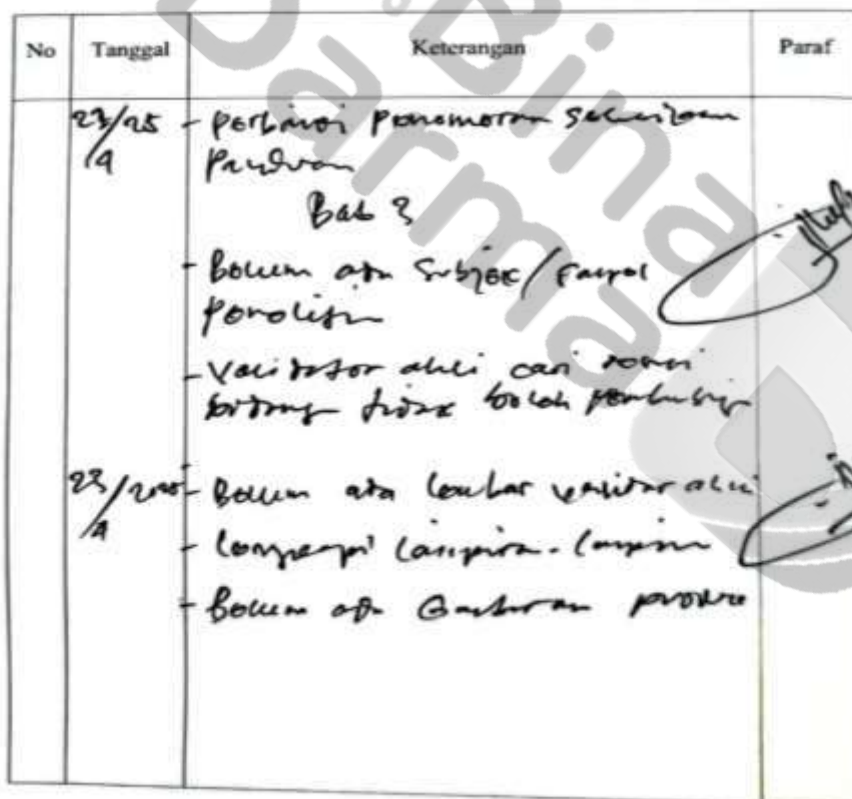 Bina
Darma
No Tanggal Keterangan Paraf
23/25 - perbaiki penomoran sesuaikan
/4 Panduan
Bab 3
- Belum ada Subjek /
penelitian
- Validator ahli cari sesuai
bidang tidak boleh pembimbing
23/2025 - Belum ada lembar validator ahli
/4 - lengkapi lampiran-lampiran
- Belum ada Gambaran produk